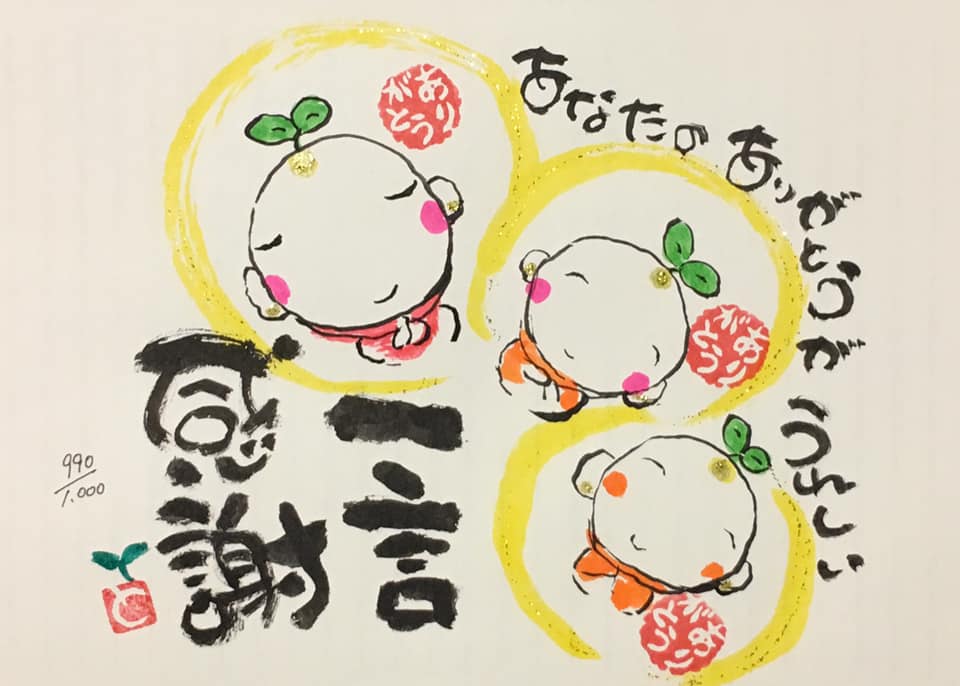 あなたの
ありがとうが
うれしい
ありがとう
ありがとう
ありがとう
一言
感謝
990/1.000
と